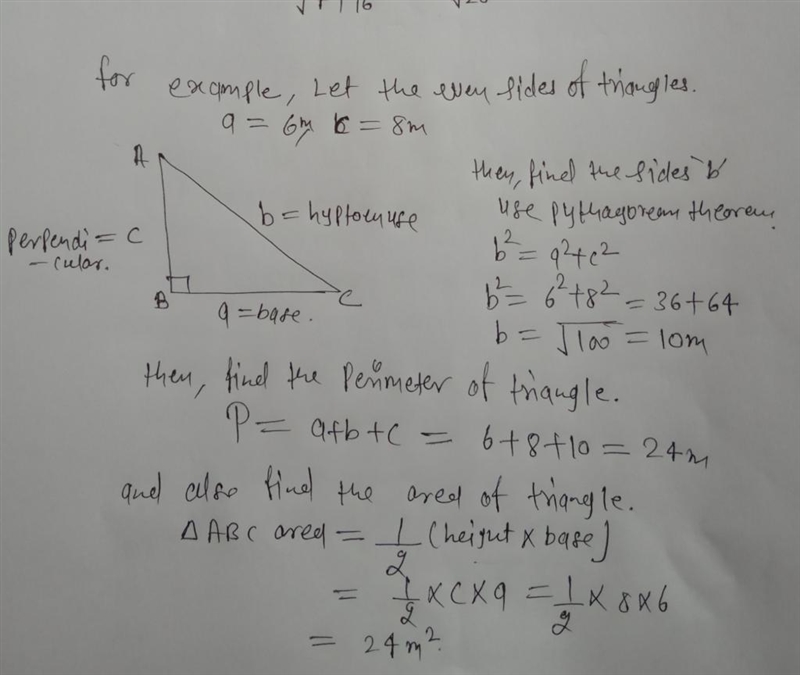 for example, Let the even sides of triangles.
a = 6m, c = 8m
A
b = hyptoenuse
perpendi = C
-cular.
B
C
a = base.
then, find the sides b
use pythagorean theorem.
b² = a²+c²
b² = 6²+8² = 36+64
b = √100 = 10m
then, find the Perimeter of triangle.
P = a+b+c = 6+8+10 = 24m
and also find the area of triangle.
△ABC area = 1/2 (height × base)
= 1/2 × c × a = 1/2 × 8 × 6
= 24m².